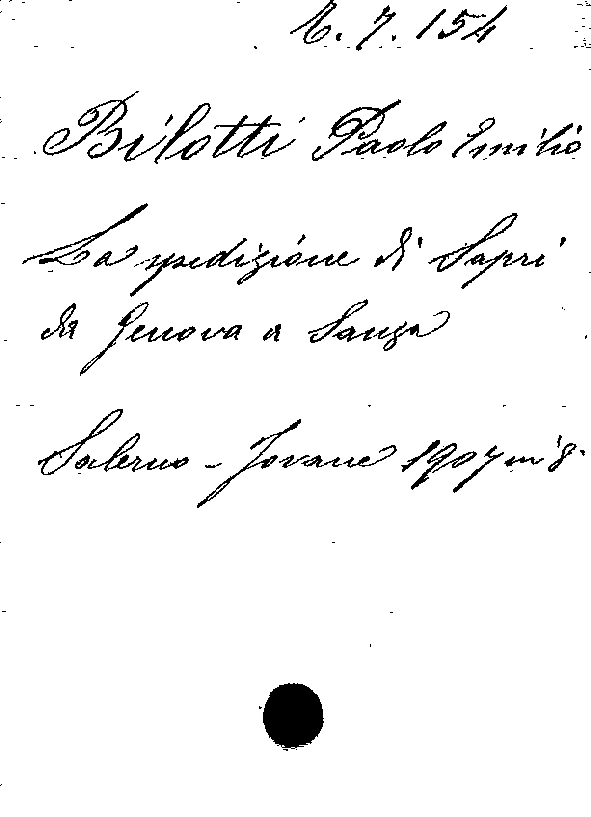 E. 7. 154
Bilotti Paolo Emilio
La spedizione di Sapri
da Genova a Sanza
Salerno - Jovane 1907 in 8.